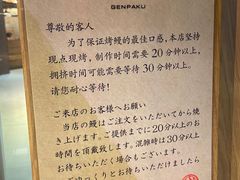 GENPAKU
尊敬的客人
为了保证烤鳗的最佳口感，本店坚持
现点现烤，制作时间需要 20分钟以上，
拥挤时间可能需要等待 30分钟以上。
请您耐心等待！
ご来店のお客様へお願い
当店の鰻はご注文をいただいてから焼
き上げます。ご提供までに20分以上のお
時間を頂戴致します。混雑時は30分以上
お待ちいただく場合もございます。
ごゆっくりとお待ちいただけましたら